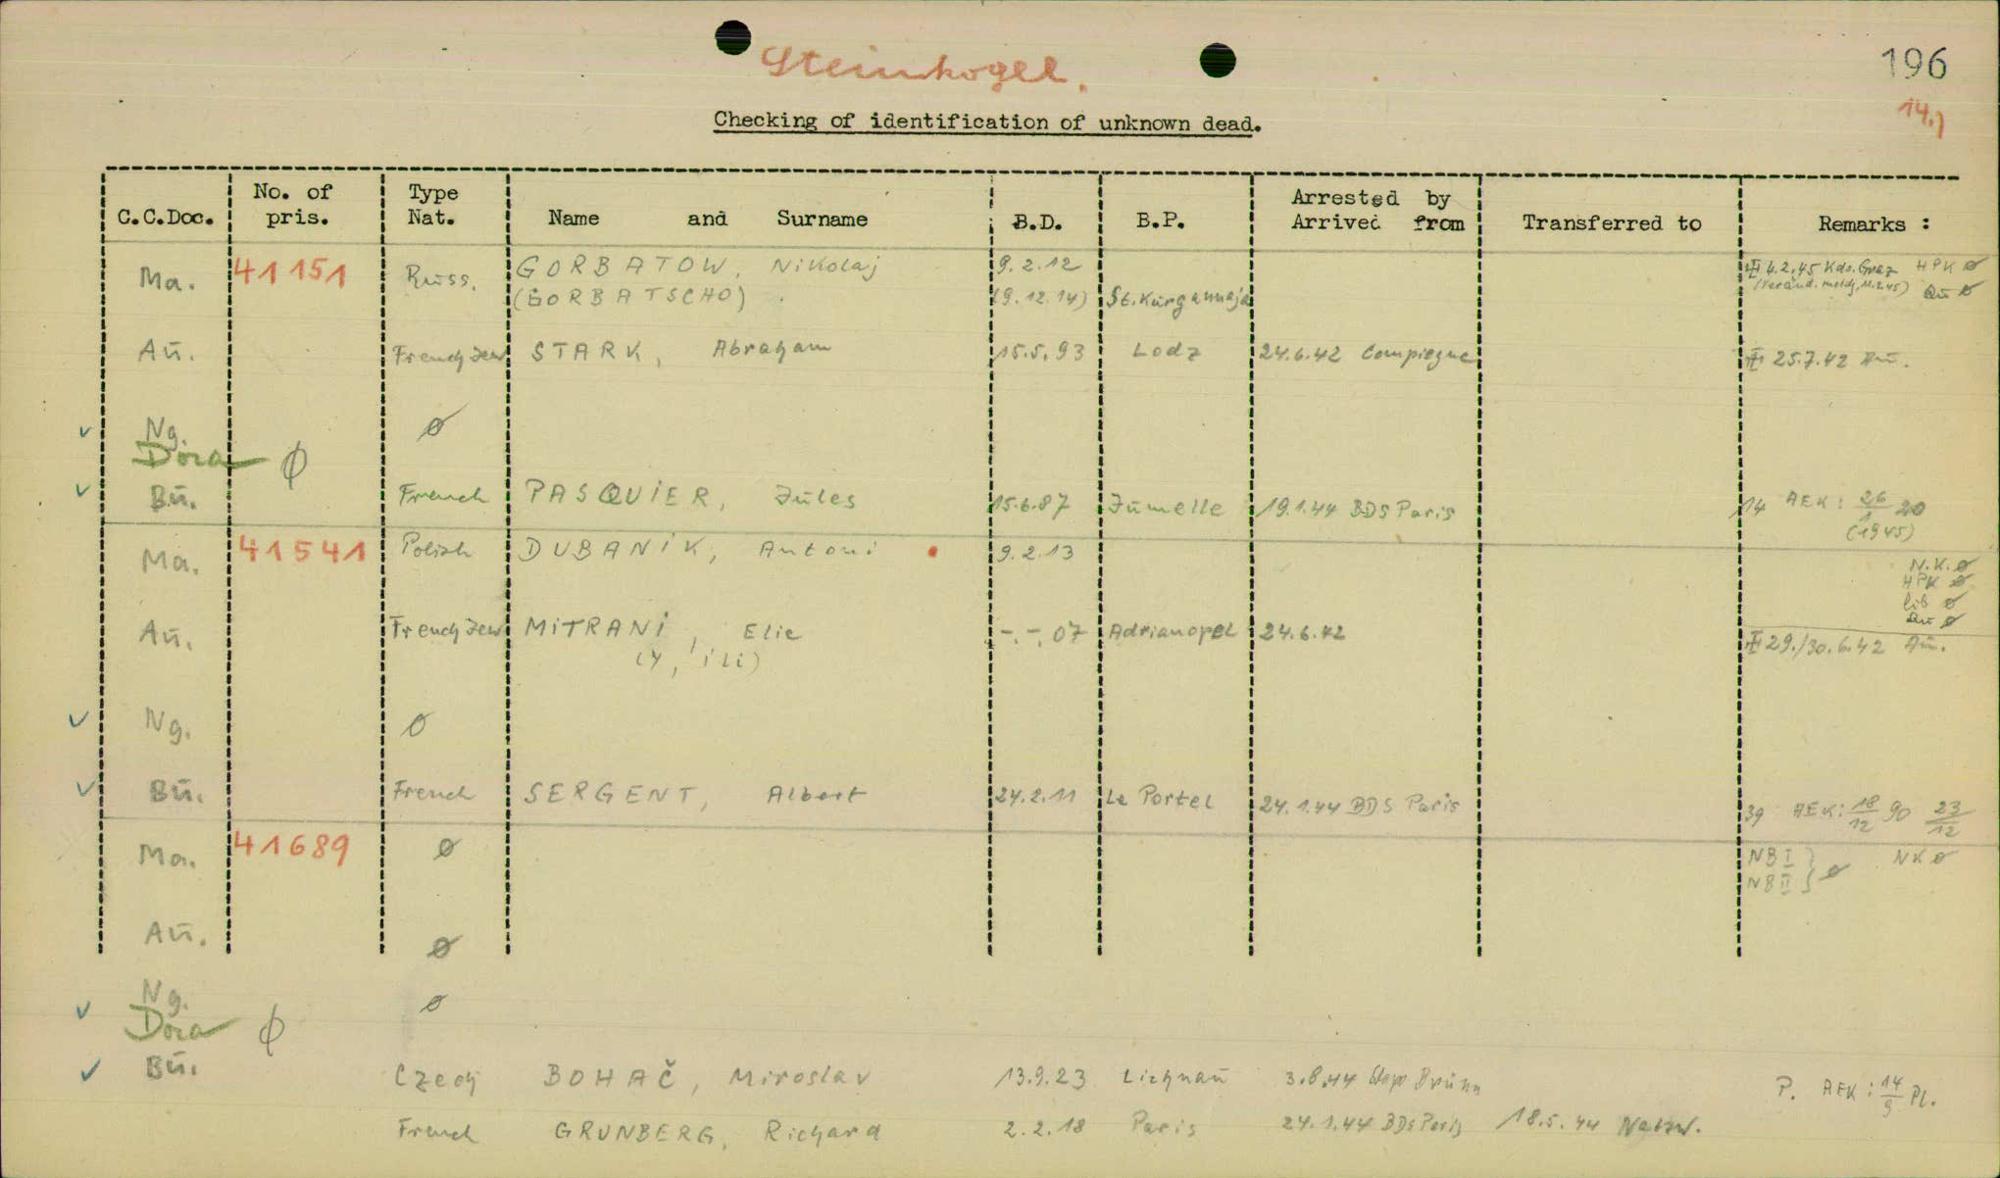 Steinkogel.
196
14.)
Checking of identification of unknown dead.
C.C.Doc. No. of pris. Type Nat. Name and Surname B.D. B.P. Arrested by Arrived from Transferred to Remarks :
Ma. 41151 Russ. GORBATOW, Nikolaj 9.2.12 4.2.45 Kdo. Graz HPK ø
(GORBATSCHO) (9.12.14) St. Kurgannaja (Veränd. meldg. 11.2.45) Qu ø
Au. French Jew STARK, Abraham 15.5.93 Lodz 24.6.42 Compiegne 25.7.42 Au.
Ng. ø
Dora ø
Bu. French PASQUIER, Jules 15.6.87 Jumelle 19.1.44 BDS Paris 14 AEK: 26/1 20
(1945)
Ma. 41541 Polish DUBANIK, Antoni 9.2.13 N.K. ø
HPK ø
lib ø
Qu ø
Au. French Jew MITRANI, Elie -.-.07 Adrianopel 24.6.42 29./30.6.42 Au.
(Y, ili)
Ng. ø
Bu. French SERGENT, Albert 24.2.11 Le Portel 24.1.44 BDS Paris 39 AEK: 18/12 90 23/12
Ma. 41689 ø NB I } ø NK ø
NB II
Au. ø
Ng. ø
Dora ø
Bu.
Czech BOHAČ, Miroslav 13.9.23 Lichnau 3.8.44 Stapo Brünn P. AEK: 14/9 Pl.
French GRUNBERG, Richard 2.2.18 Paris 24.1.44 BDS Paris 18.5.44 Natzw.